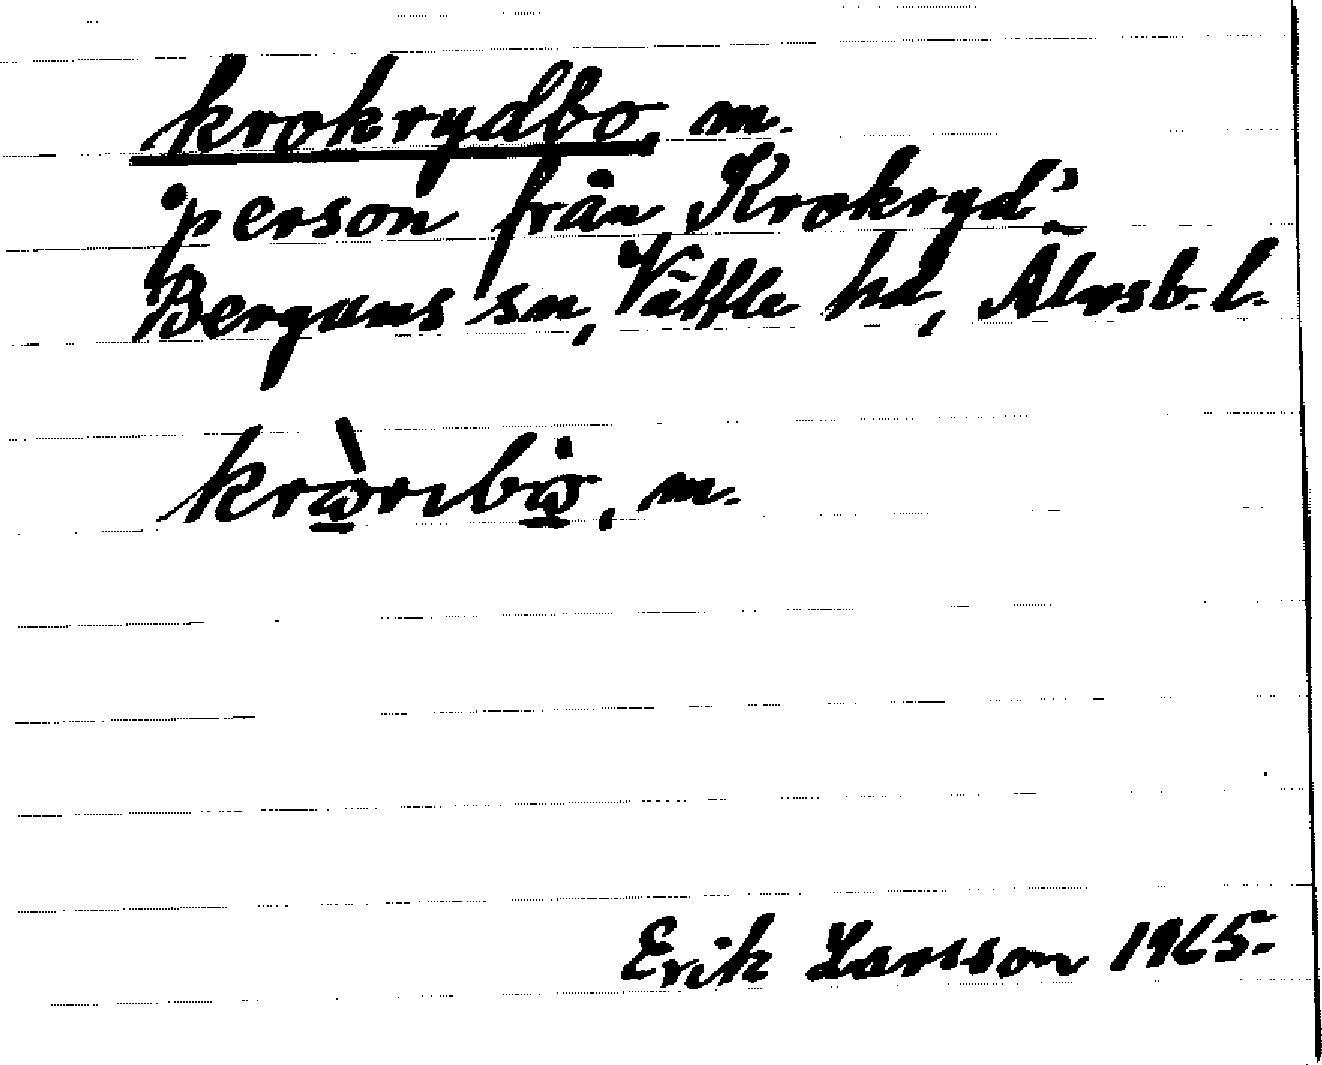 krokrydbo, m.
'person från Krokryd'.
Bergums sn, Vättle hd, Älvsb. l.
krὼ̲rıbω̲̇, m.
Erik Larsson 1965.